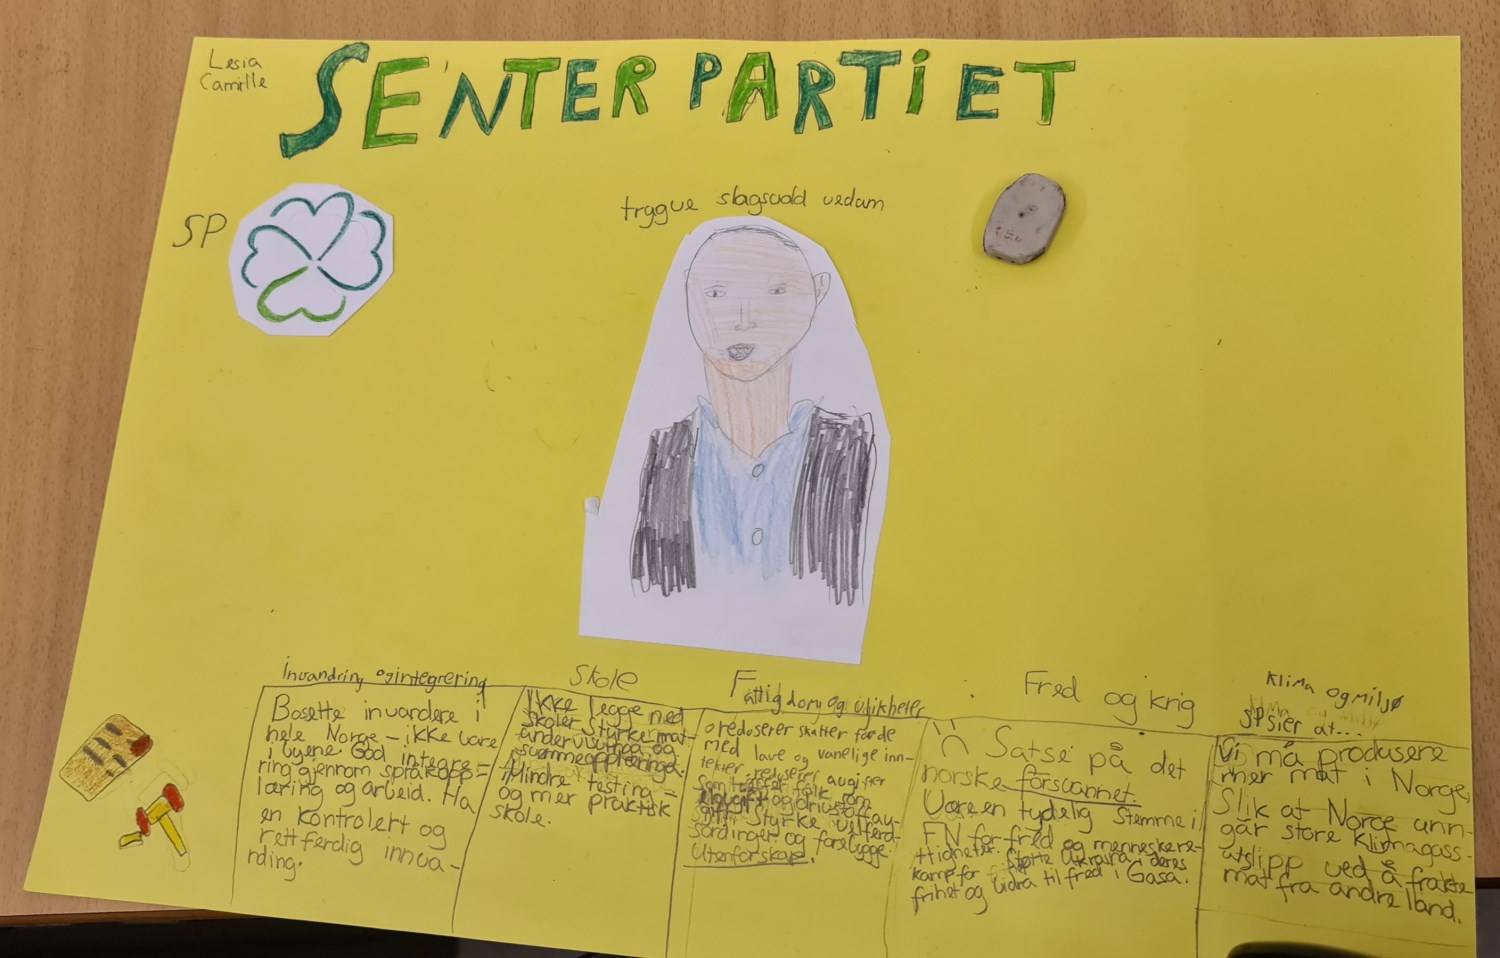 Lesia
Camille
SENTERPARTIET
SP
trygve slagsvold vedum
Invandring og integrering
Bosette invandere i
hele Norge - ikke bare
i byene. God integre-
ring gjennom språkopp=
læring og arbeid. Ha
en kontrolert og
rettferdig innva-
nding.
Skole
Ikke legge ned
skoler. Styrke mat-
undervisning og
svømmeopplæringa.
Mindre testing =
og mer praktisk
skole.
Fattigdom og ulikheter
reduserer skatter for de
med lave og vanelige inn-
tekter, reduserer avgifter
som treffer folk som
elavgift og drivstoffav-
gift. Styrke velferd-
sordinger og forebygge
Utenforskap.
Fred og krig
Satse på det
norske forsvannet.
Være en tydelig stemme i
FN for fred og menneskere-
ttigheter. Støtte Ukraina i deres
kamp for
frihet og bidra til fred i Gasa.
Klima og miljø
SP sier at...
Vi må produsere
mer mat i Norge,
Slik at Norge unn-
går store klimagass-
utslipp ved å frakte
mat fra andre land.